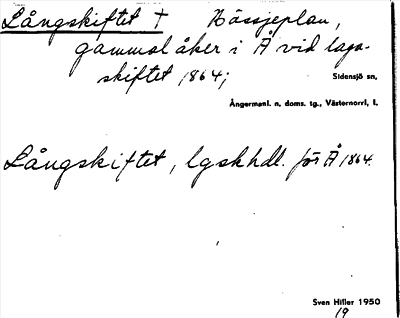 Långskiftet † Hässjeplan,
gammal åker i Å vid laga-
skiftet 1864;
Sidensjö sn,
Ångermanl. n. doms. tg., Västernorrl. l.
Långskiftet, lgskhdl. för Å 1864.
Sven Hiller 1950
19